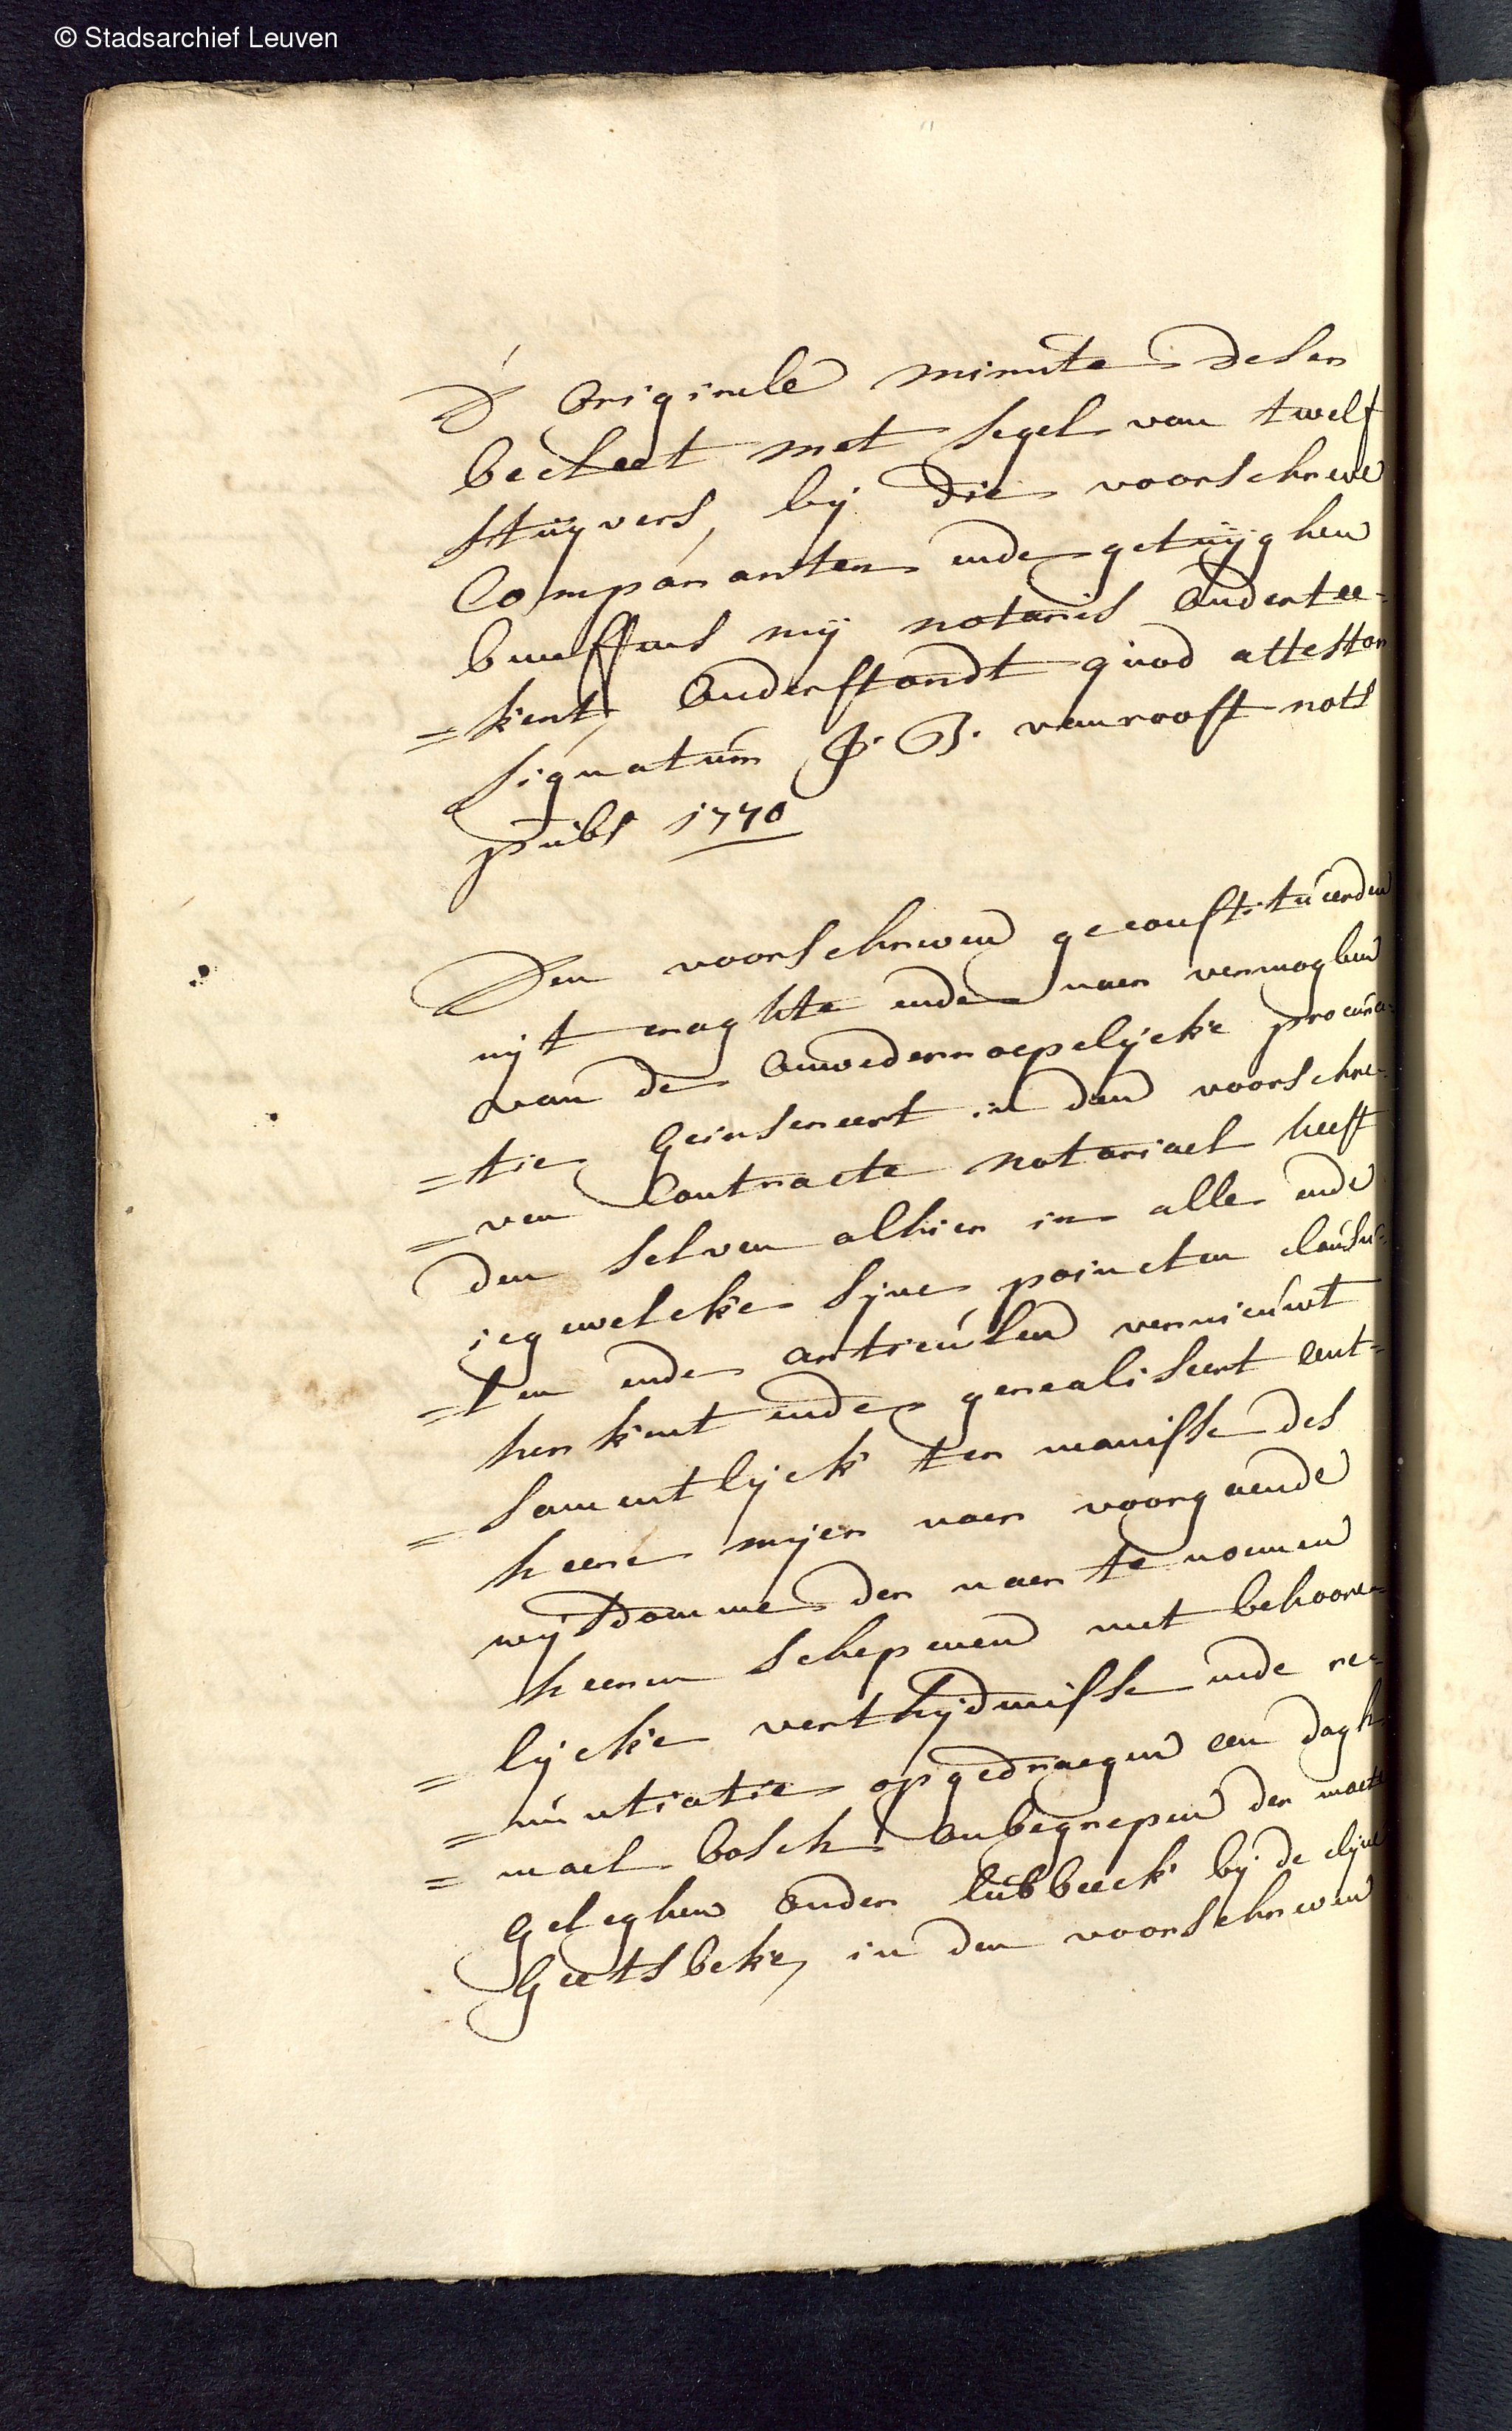 © Stadsarchief Leuven
D' Originele minute deser
becleet met segel van twelf
stuyvers, by die voorschreve
Comparanten ende getuyghen
beneffens my notaris Onderteе-
=kent, Onderstondt quod attestor
signatum J. B. vanroost nots
pubs 1770
Den voorschreven geconstitueerden
uyt maghte ende naer vermoghen
van de Onwederroepelycke procura-
=tie geinsereert in den voorschre-
=ven Contracte notariael heeft
den selven alhier in alle ende
iegewelcke syne poincten clausu-
=len ende articulen vernieuwt
herkent ende gerealiseert ent-
=samentlyck ter manisse des
heere meyer naer voorgaende
wysdomme der naer te noemen
heeren schepenen met behoore-
=lycke verthydenisse ende re-
=nuntiatie opgedraegen een dagh
=mael bosch onbegrepen der maete
Geleghen onder lubbeeck by de clyne
Geetsbeke, in den voorschreven